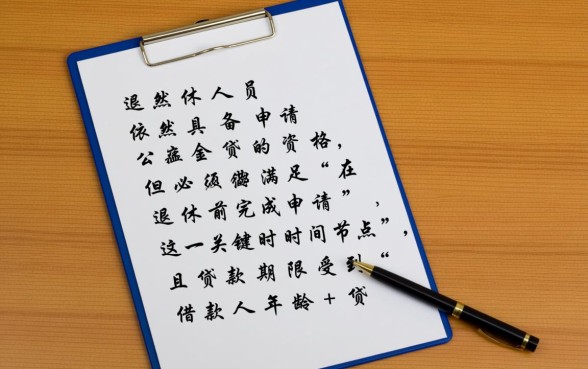 退然休人员
依然具备申请
公金贷的资格，
但必须满足“在
退休前完成申请”，
这一关键时时间节点”，
且贷款期限受到“
借款人年龄+贷